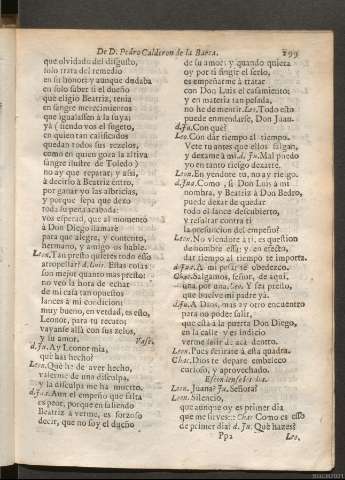 De D. Pedro Calderon de la Barca. 299
que olvidado del disgusto,
solo trata del remedio
en su honor: y aunque dudaba
en solo saber si el dueño
que eligió Beatriz, tenia
en sangre merecimientos
que igualassen à la suya;
yà (siendo vos el sugeto,
en quien tan calificados
quedan todos sus rezelos,
como en quien goza la altiva
sangre ilustre de Toledo)
no ay que reparar; y assi,
à decirlo à Beatriz entro,
por ganar yo las albricias,
y porque sepa que dexo
toda su pena acabada:
vos esperad, que al momento
à Don Diego llamarè
para que alegre, y contento,
hermano, y amigo os hable.
Leon. Tan presto quieres todo esso
atropellar? d. Luis. Estas cosas
son mejor quanto mas presto:
no veo la hora de echar
de mi casa tan opuestos
lances à mi condicion:
muy bueno, en verdad, es esto,
Leonor, para tu recato;
vayanse allà con sus zelos,
y su amor. Vase.
d. Ju. Ay Leonor mia,
què has hecho?
Leon. Què he de aver hecho,
valerme de una disculpa,
y la disculpa me ha muerto.
d. Jua. Aun el empeño que falta
es peor, porque en saliendo
Beatriz à verme, es forzoso
decir, que no soy el dueño
de su amor: y quando quiera
oy por ti fingir el serlo,
es empeñarme à tratar
con Don Luis el casamiento;
y en materia tan pesada,
no he de mentir. Leo. Todo esto
puede enmendarse, Don Juan.
d. Ju. Con què?
Leo. Con dar tiempo al tiempo.
Vete tu antes que ellos salgan,
y dexame à mi. d. Ju. Mal puedo
yo en tanto riesgo dexarte.
Leon. En yendote tu, no ay riesgo.
d. Jua. Como, si Don Luis à mi
nombra, y Beatriz à Don Pedro,
puede dexar de quedar
todo el lance descubierto,
y resultar contra ti
la presuncion del empeño?
Leon. No viendote à ti, es question
de nombre essa: y en efecto,
dar tiempo al tiempo te importa.
d. Jua. A mi pesar te obedezco.
Chac. Salgamos, señor, de aqui,
una por una. Leo. Y sea presto,
que buelve mi padre yà.
d. Ju. A Dios, mas ay otro encuentro
para no poder salir,
que està à la puerta Don Diego,
en la calle y es indicio
verme salir de acà dentro.
Leon. Pues retirate à esta quadra.
Chac. Dios te depare embeleco
curioso, y aprovechado.
Escondense los dos.
Leon. Juana? Ju. Señora?
Leon. Silencio,
que aunque oy es primer dia
que me sirves:: Chac. Como es esso
de primer dia? d. Ju. Què hazes?
Pp2 Leo.